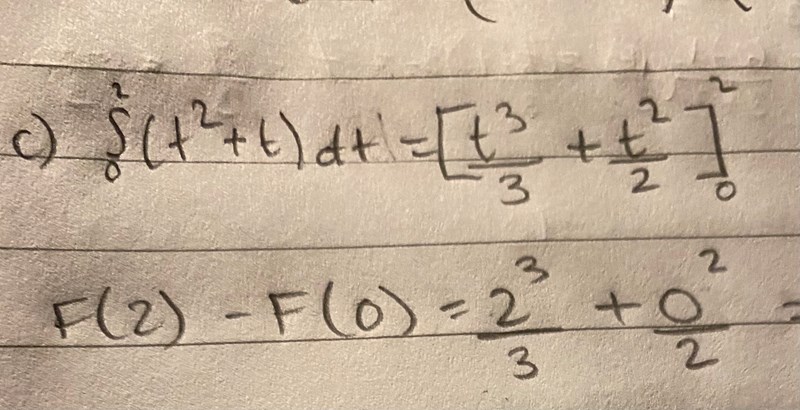 c) ∫₀² (t² + t) dt = [t³/3 + t²/2]₀²
F(2) - F(0) = 2³/3 + 0²/2 =